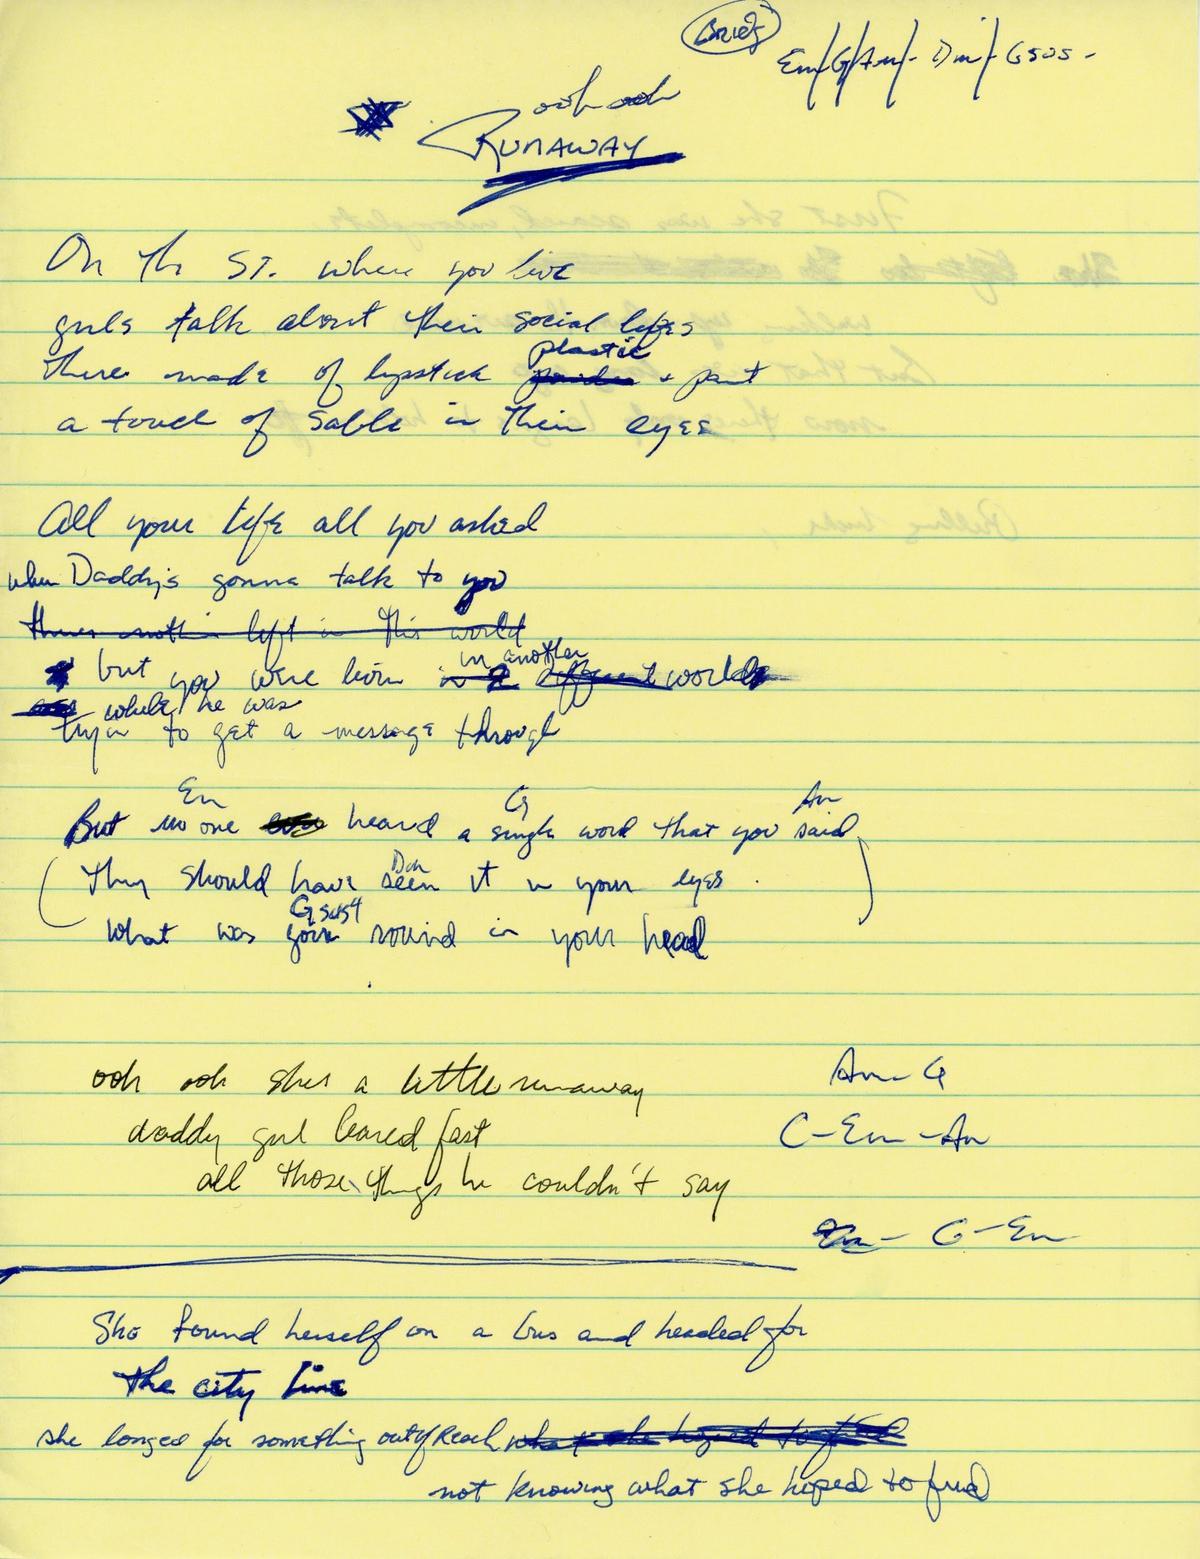 Em/G/Am/- Dm/- Gsus-
ooh ooh
RUNAWAY
On Th ST. where you live
girls talk about their social lifes
there made of lipstick plastic powder + paint
a touch of Sable in their eyes
All your life all you asked
when Daddy's gonna talk to you
theres nothin left in this world
but you were livin in another in a different world
while he was
tryin to get a message through
Em G Am
But no one heard a single word that you said
They should have seen it in your eyes.
Gsus4
What was goin round in your head
ooh ooh shes a little runaway Am-G
daddy girl leared fast C-Em-Am
all those things he couldn't say
G-Em
She found herself on a bus and headed for
the city line
she longed for something out of Reach what she hoped to find
not knowing what she hoped to find